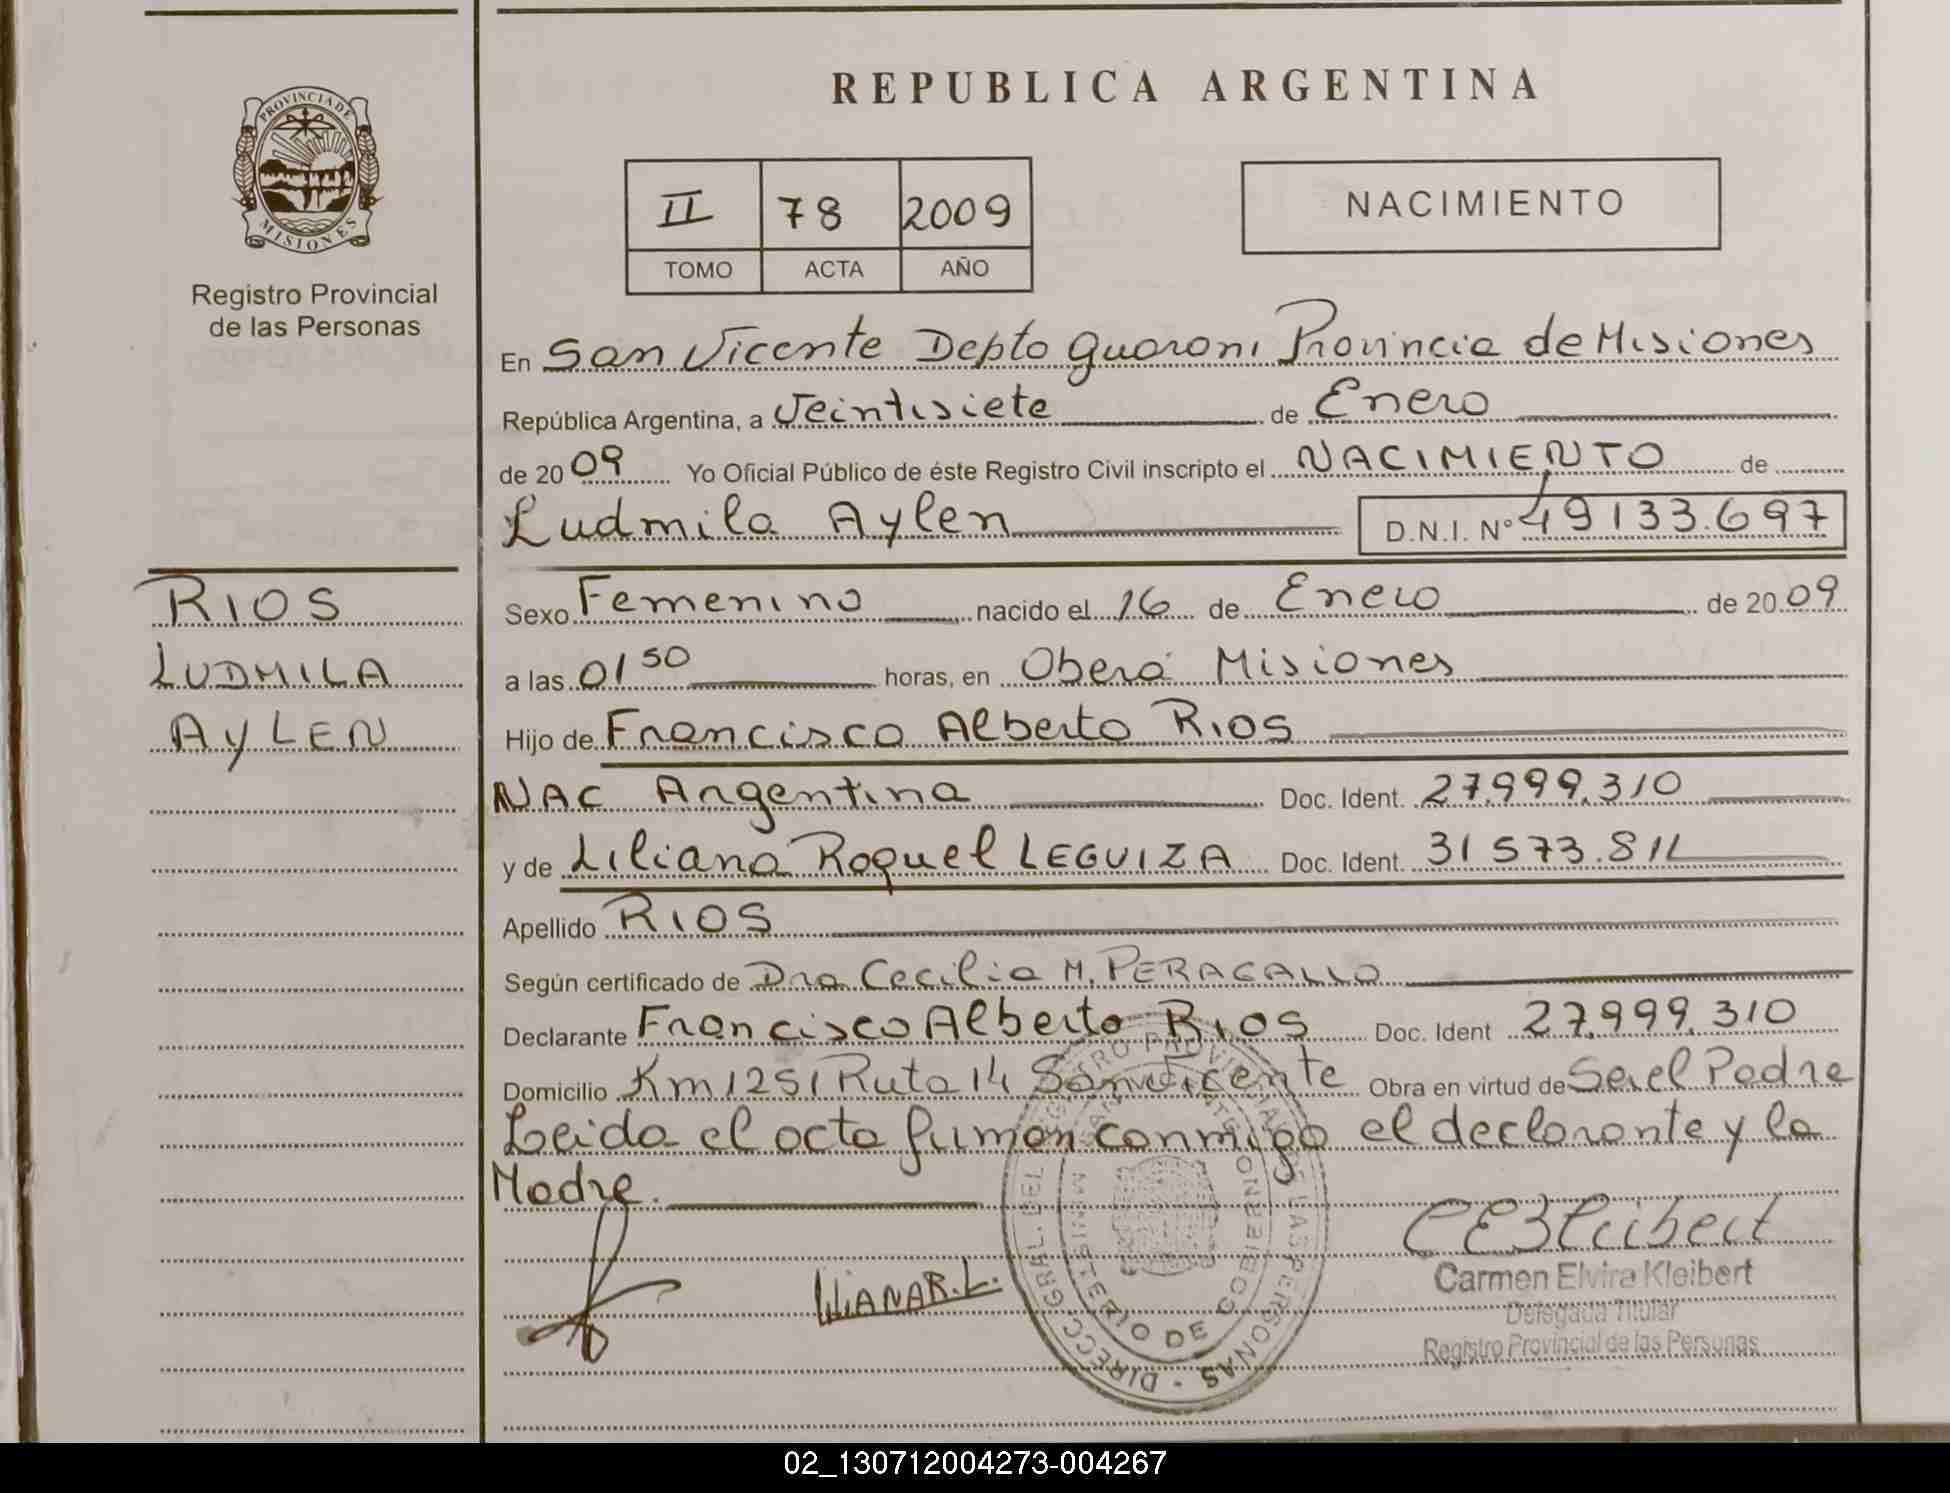 REPUBLICA ARGENTINA
PROVINCIA DE MISIONES
Registro Provincial
de las Personas
II 78 2009
TOMO ACTA AÑO
NACIMIENTO
En San Vicente Depto Guarani Provincia de Misiones
República Argentina, a Veintisiete de Enero
de 2009 Yo Oficial Público de éste Registro Civil inscripto el NACIMIENTO de
Ludmila Aylen D.N.I. N° 49133.697
RIOS
LUDMILA
AYLEN
Sexo Femenino nacido el 16 de Enero de 2009
a las 01 50 horas, en Oberá Misiones
Hijo de Francisco Alberto RIOS
NAC Argentina Doc. Ident. 27.999.310
y de Liliana Raquel LEGUIZA Doc. Ident. 31573.811
Apellido RIOS
Según certificado de Dra Cecilia M. PERAGALLO
Declarante Francisco Alberto RIOS Doc. Ident 27.999.310
Domicilio Km 1251 Ruta 14 San Vicente Obra en virtud de Ser el Padre
Leida el acta firman conmigo el declarante y la
Madre.
LiliANA R. L.
DIRECC. GRAL. DEL REGISTRO PROVINCIAL DE LAS PERSONAS
MINISTERIO DE GOBIERNO
Carmen Elvira Kleibert
Delegada Titular
Registro Provincial de las Personas
02_130712004273-004267